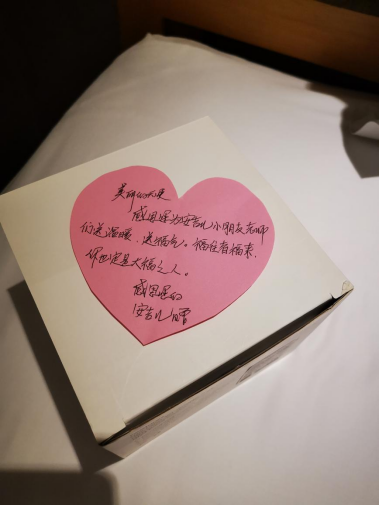 美丽的天使
感恩您为安吉儿小朋友老师
们送温暖、送福气。福往者福来,
你也定是大福之人。
感恩您的
安吉儿